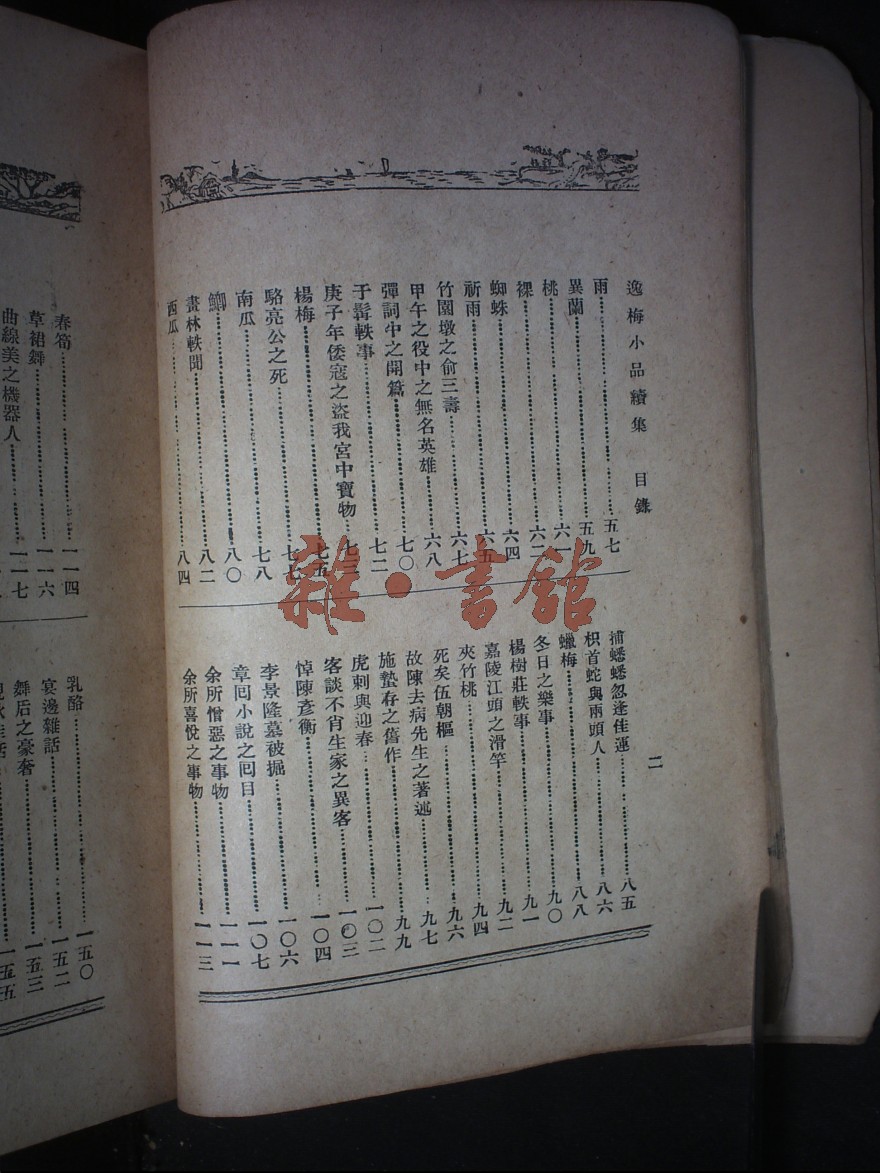 逸梅小品續集　目錄
雨……五七
異蘭……五九
桃……六一
裸……六二
蜘蛛……六四
祈雨……六五
竹園墩之俞三壽……六七
甲午之役中之無名英雄……六八
彈詞中之開篇……七〇
于髯軼事……七二
庚子年倭寇之盜我宮中寶物……七三
楊梅……七五
駱亮公之死……七七
南瓜……七八
鰂……八〇
畫林軼聞……八二
西瓜……八四
二
捕蟋蟋忽逢佳運……八五
枳首蛇與兩頭人……八六
蠟梅……八八
冬日之樂事……九〇
楊樹莊軼事……九一
嘉陵江頭之滑竿……九二
夾竹桃……九四
死矣伍朝樞……九六
故陳去病先生之著述……九七
施蟄存之舊作……九九
虎刺與迎春……一〇二
客談不肖生家之異客……一〇三
悼陳彥衡……一〇四
李景隆墓被掘……一〇六
章回小說之回目……一〇七
余所憎惡之事物……一一一
余所喜悅之事物……一一三
春筍……一一四
草裙舞……一一六
曲線美之機器人……一一七
乳酪……一五〇
宴邊雜話……一五二
舞后之豪奢……一五三
一五五
雜·書館